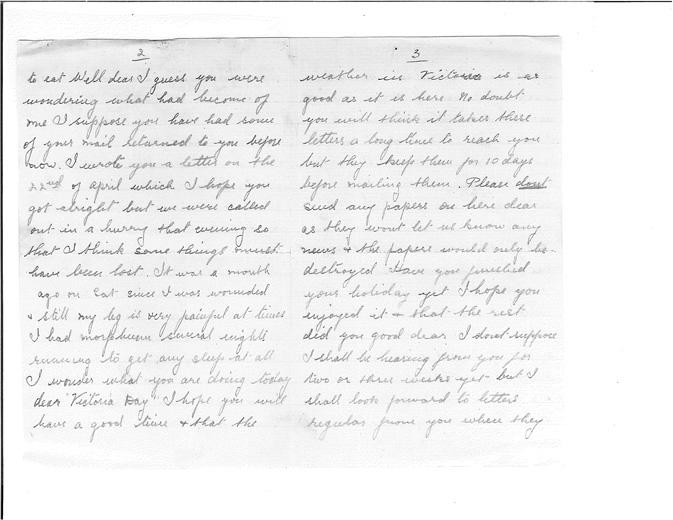 2
to eat Well dear I guess you were
wondering what had become of
me I suppose you have had some
of your mail returned to you before
now. I wrote you a letter on the
22nd of April which I hope you
got alright but we were called
out in a hurry that evening so
that I think some things must
have been lost. It was a month
ago on Sat since I was wounded
& still my leg is very painful at times
I had morphium several nights
running to get any sleep at all
I wonder what you are doing today
dear "Victoria Day" I hope you will
have a good time & that the
3
weather in Victoria is as
good as it is here No doubt
you will think it takes these
letters a long time to reach you
but they keep them for 10 days
before mailing them. Please dont
send any papers on here dear
as they wont let us know any
news & the papers would only be
destroyed Have you finished
your holiday yet I hope you
enjoyed it & that the rest
did you good dear I dont suppose
I shall be hearing from you for
two or three weeks yet but I
shall look forward to letters
regular from you when they